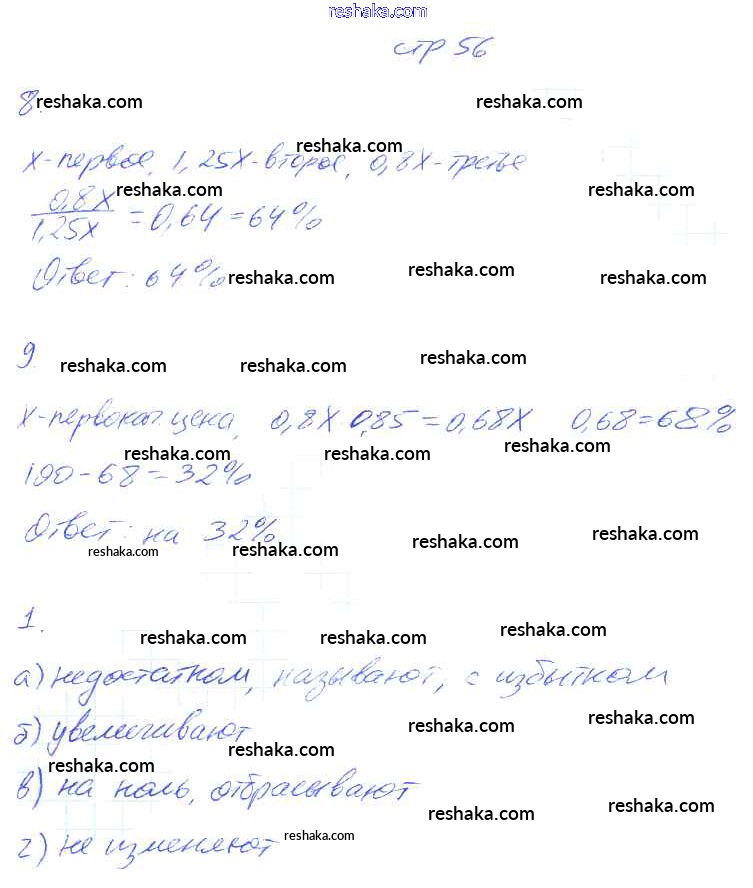 reshaka.com
стр 56
8. reshaka.com reshaka.com
reshaka.com
х-первое, 1,25х-второе, 0,8х-третье
reshaka.com reshaka.com
0,8х
1,25х = 0,64 = 64%
Ответ: 64% reshaka.com reshaka.com reshaka.com
9. reshaka.com reshaka.com reshaka.com
х-первонач. цена, 0,8х·0,85=0,68х 0,68=68%
reshaka.com reshaka.com reshaka.com
100-68=32%
Ответ: на 32%
reshaka.com reshaka.com reshaka.com reshaka.com
1.
reshaka.com reshaka.com reshaka.com
а) недостатком, называют, с избытком
б) увеличивают reshaka.com reshaka.com
reshaka.com reshaka.com
в) на ноль, отбрасывают
reshaka.com reshaka.com
г) не изменяют reshaka.com